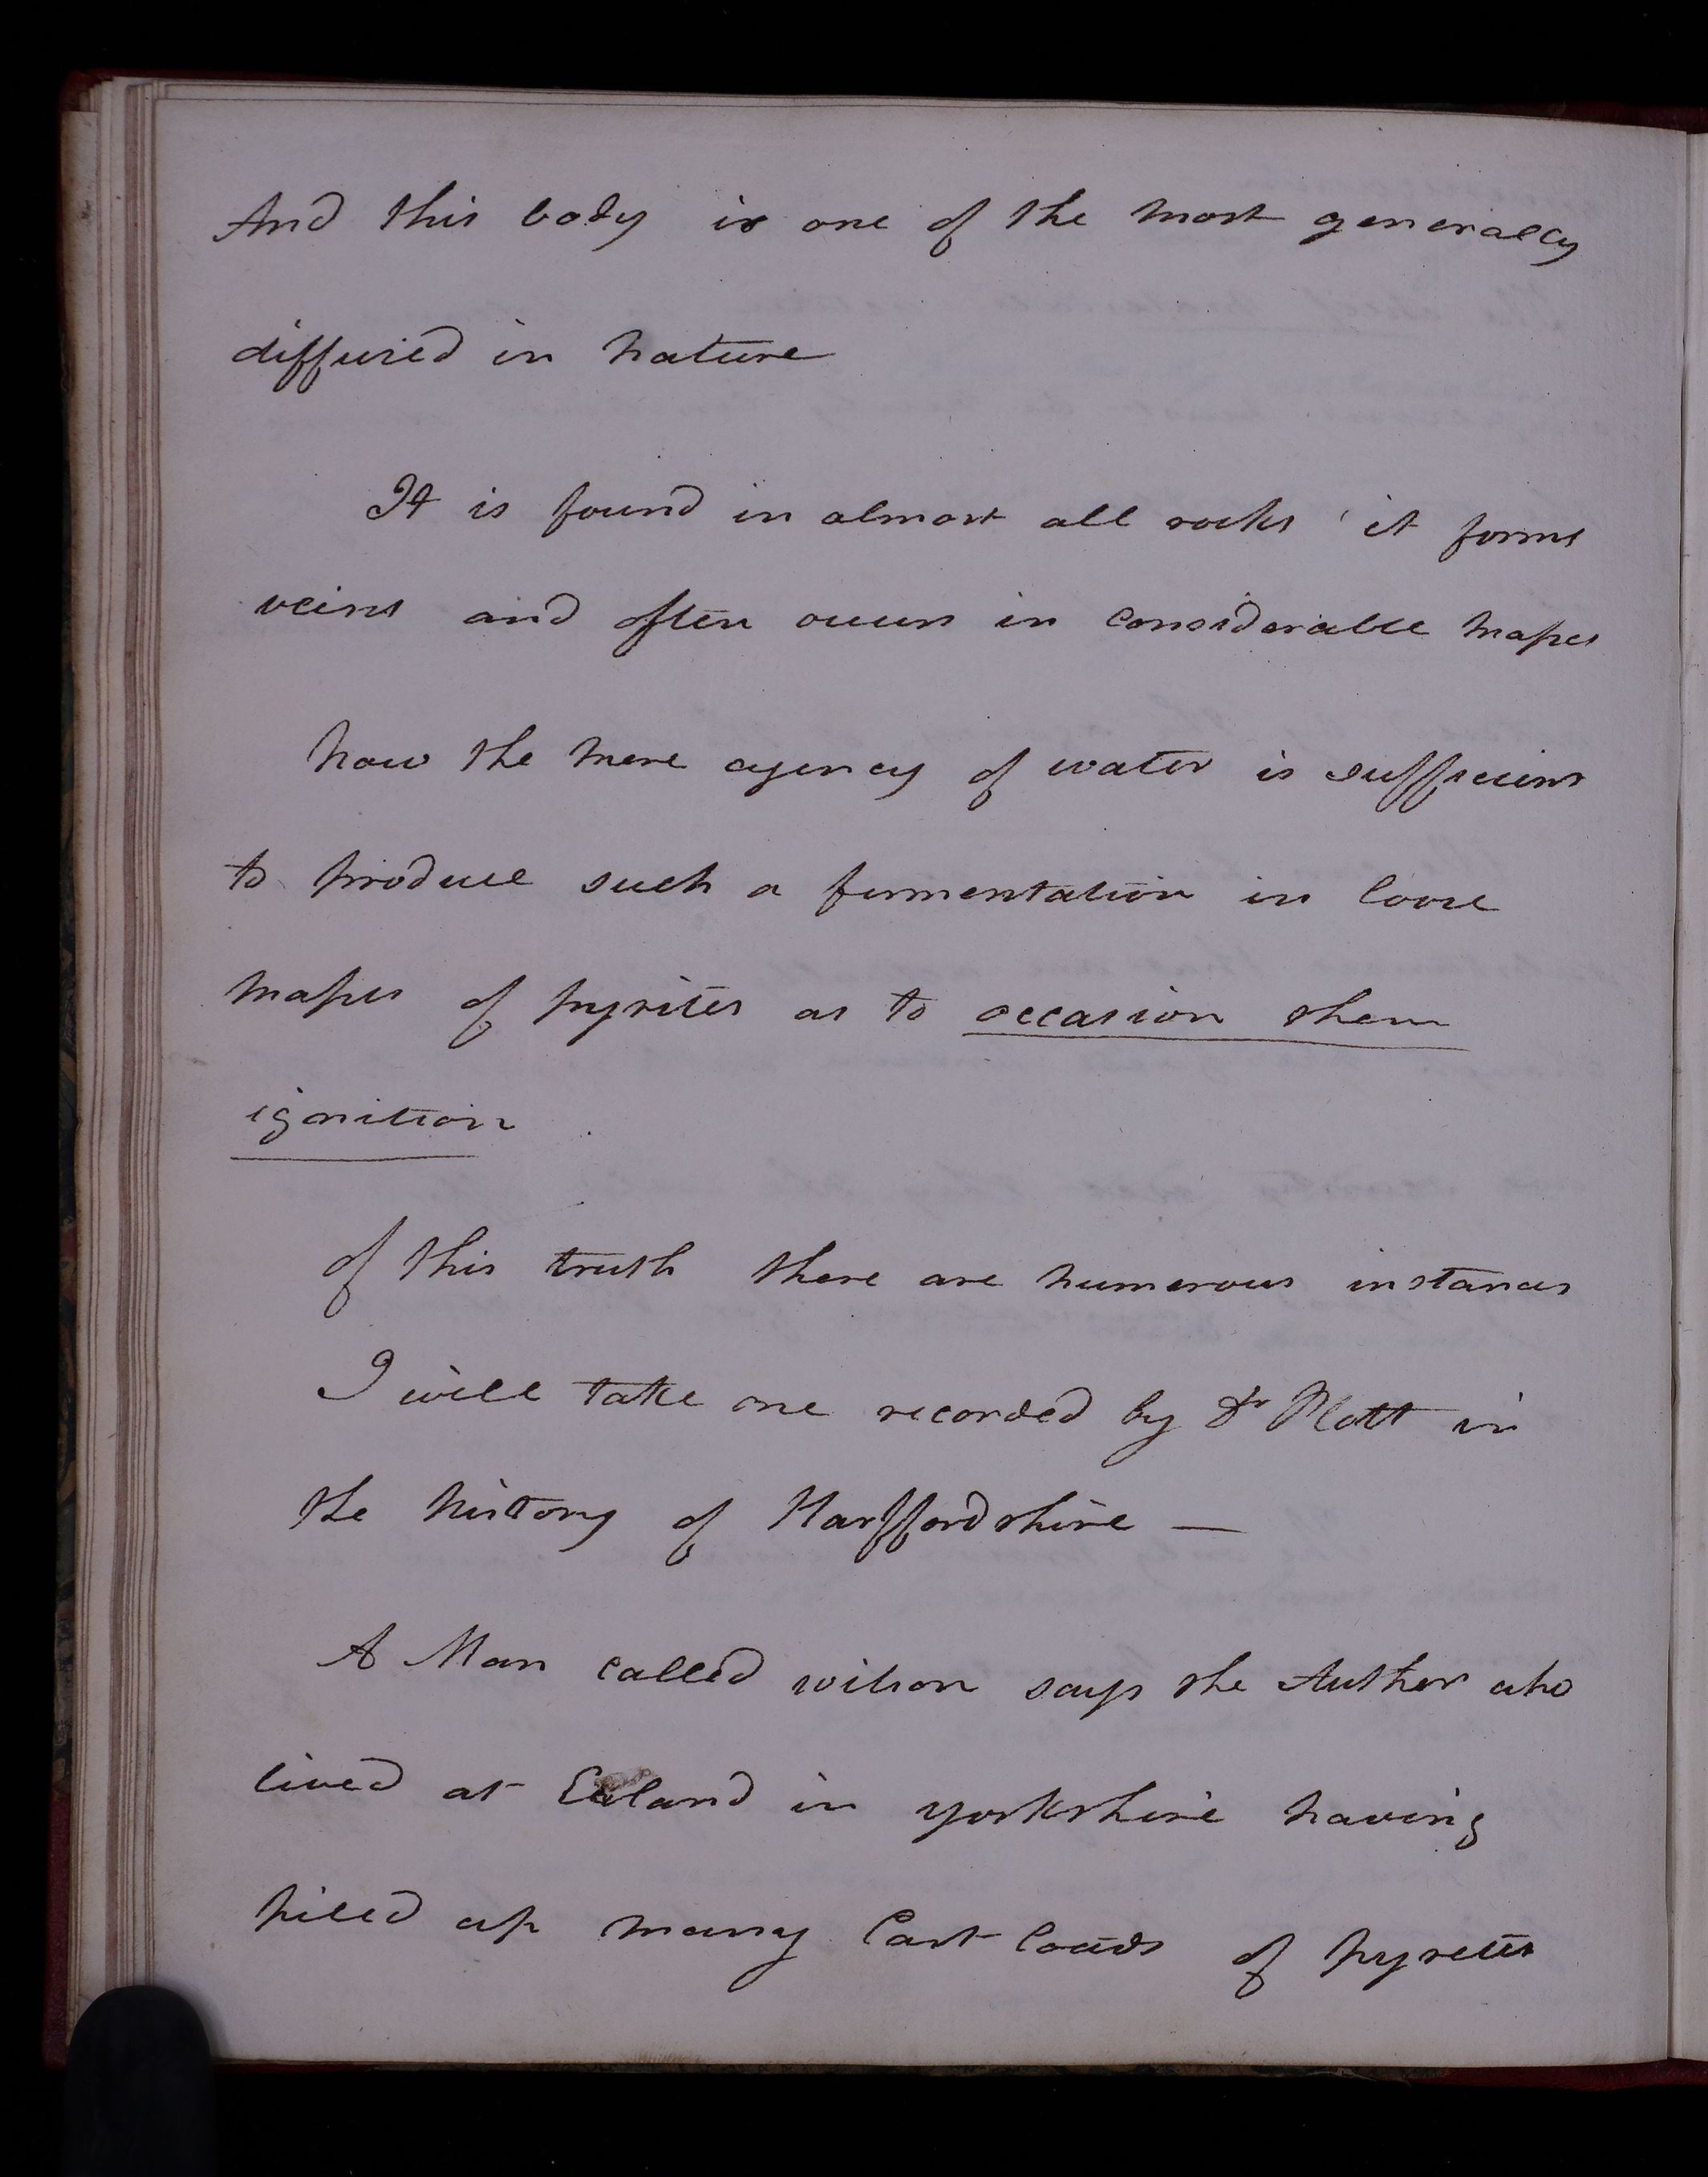 And this body is one of the most generally
diffused in nature
It is found in almost all rocks it forms
veins and often occurs in considerable masses
Now the mere agency of water is sufficient
to produce such a fermentation in loose
masses of pyrites as to occasion their
ignition
of this truth there are numerous instances
I will take one recorded by Dr Plott in
the history of Hartffordshire —
A Man called wilson says the Author who
lived at Ealand in yorkshire having
piled up many Cart loads of pyrites